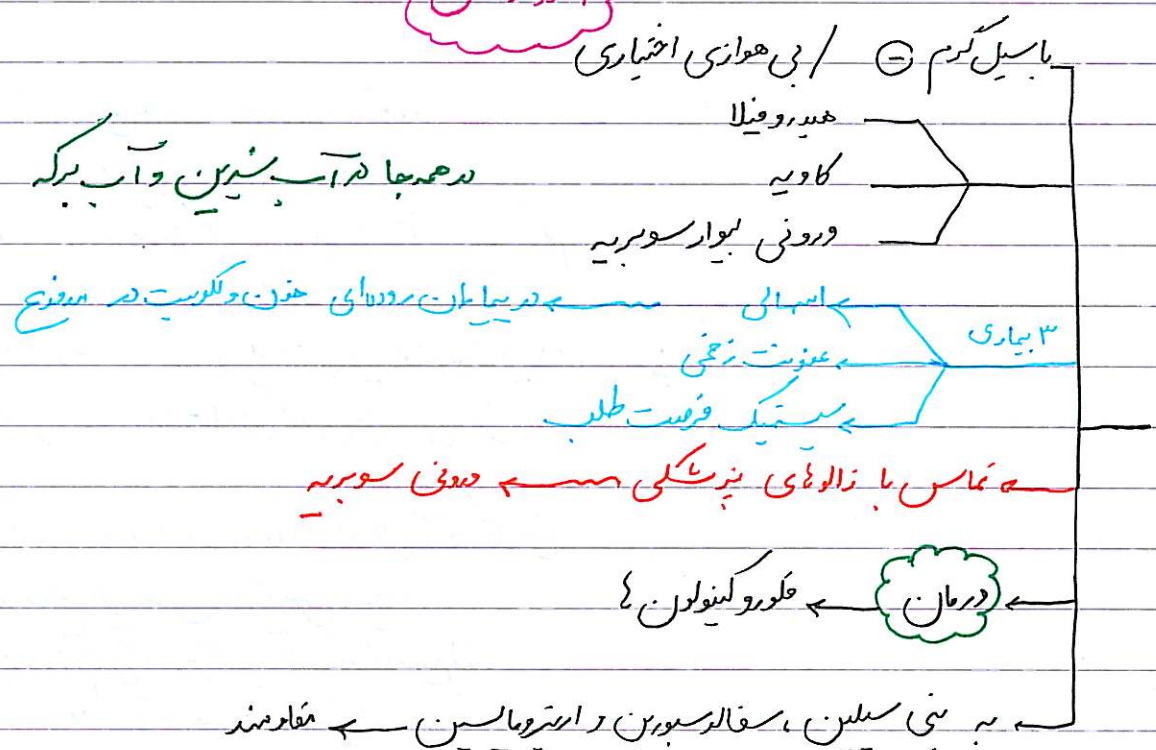 باسیل گرم ⊖ / بی هوازی اختیاری
هیدروفیلا
کاویه
ورونی بیوار سوبریه
در همه جا در آب شیرین و آب برکه
۳ بیماری
اسهالی ← در بیماران روده‌ای خون و لکوسیت در مدفوع
عفونت زخمی
سیستمیک فرصت طلب
تماس با زالوهای پزشکی ← ورونی سوبریه
درمان ← فلوروکینولون ها
به پنی سیلین، سفالوسپورین و اریترومایسین ← مقاومند